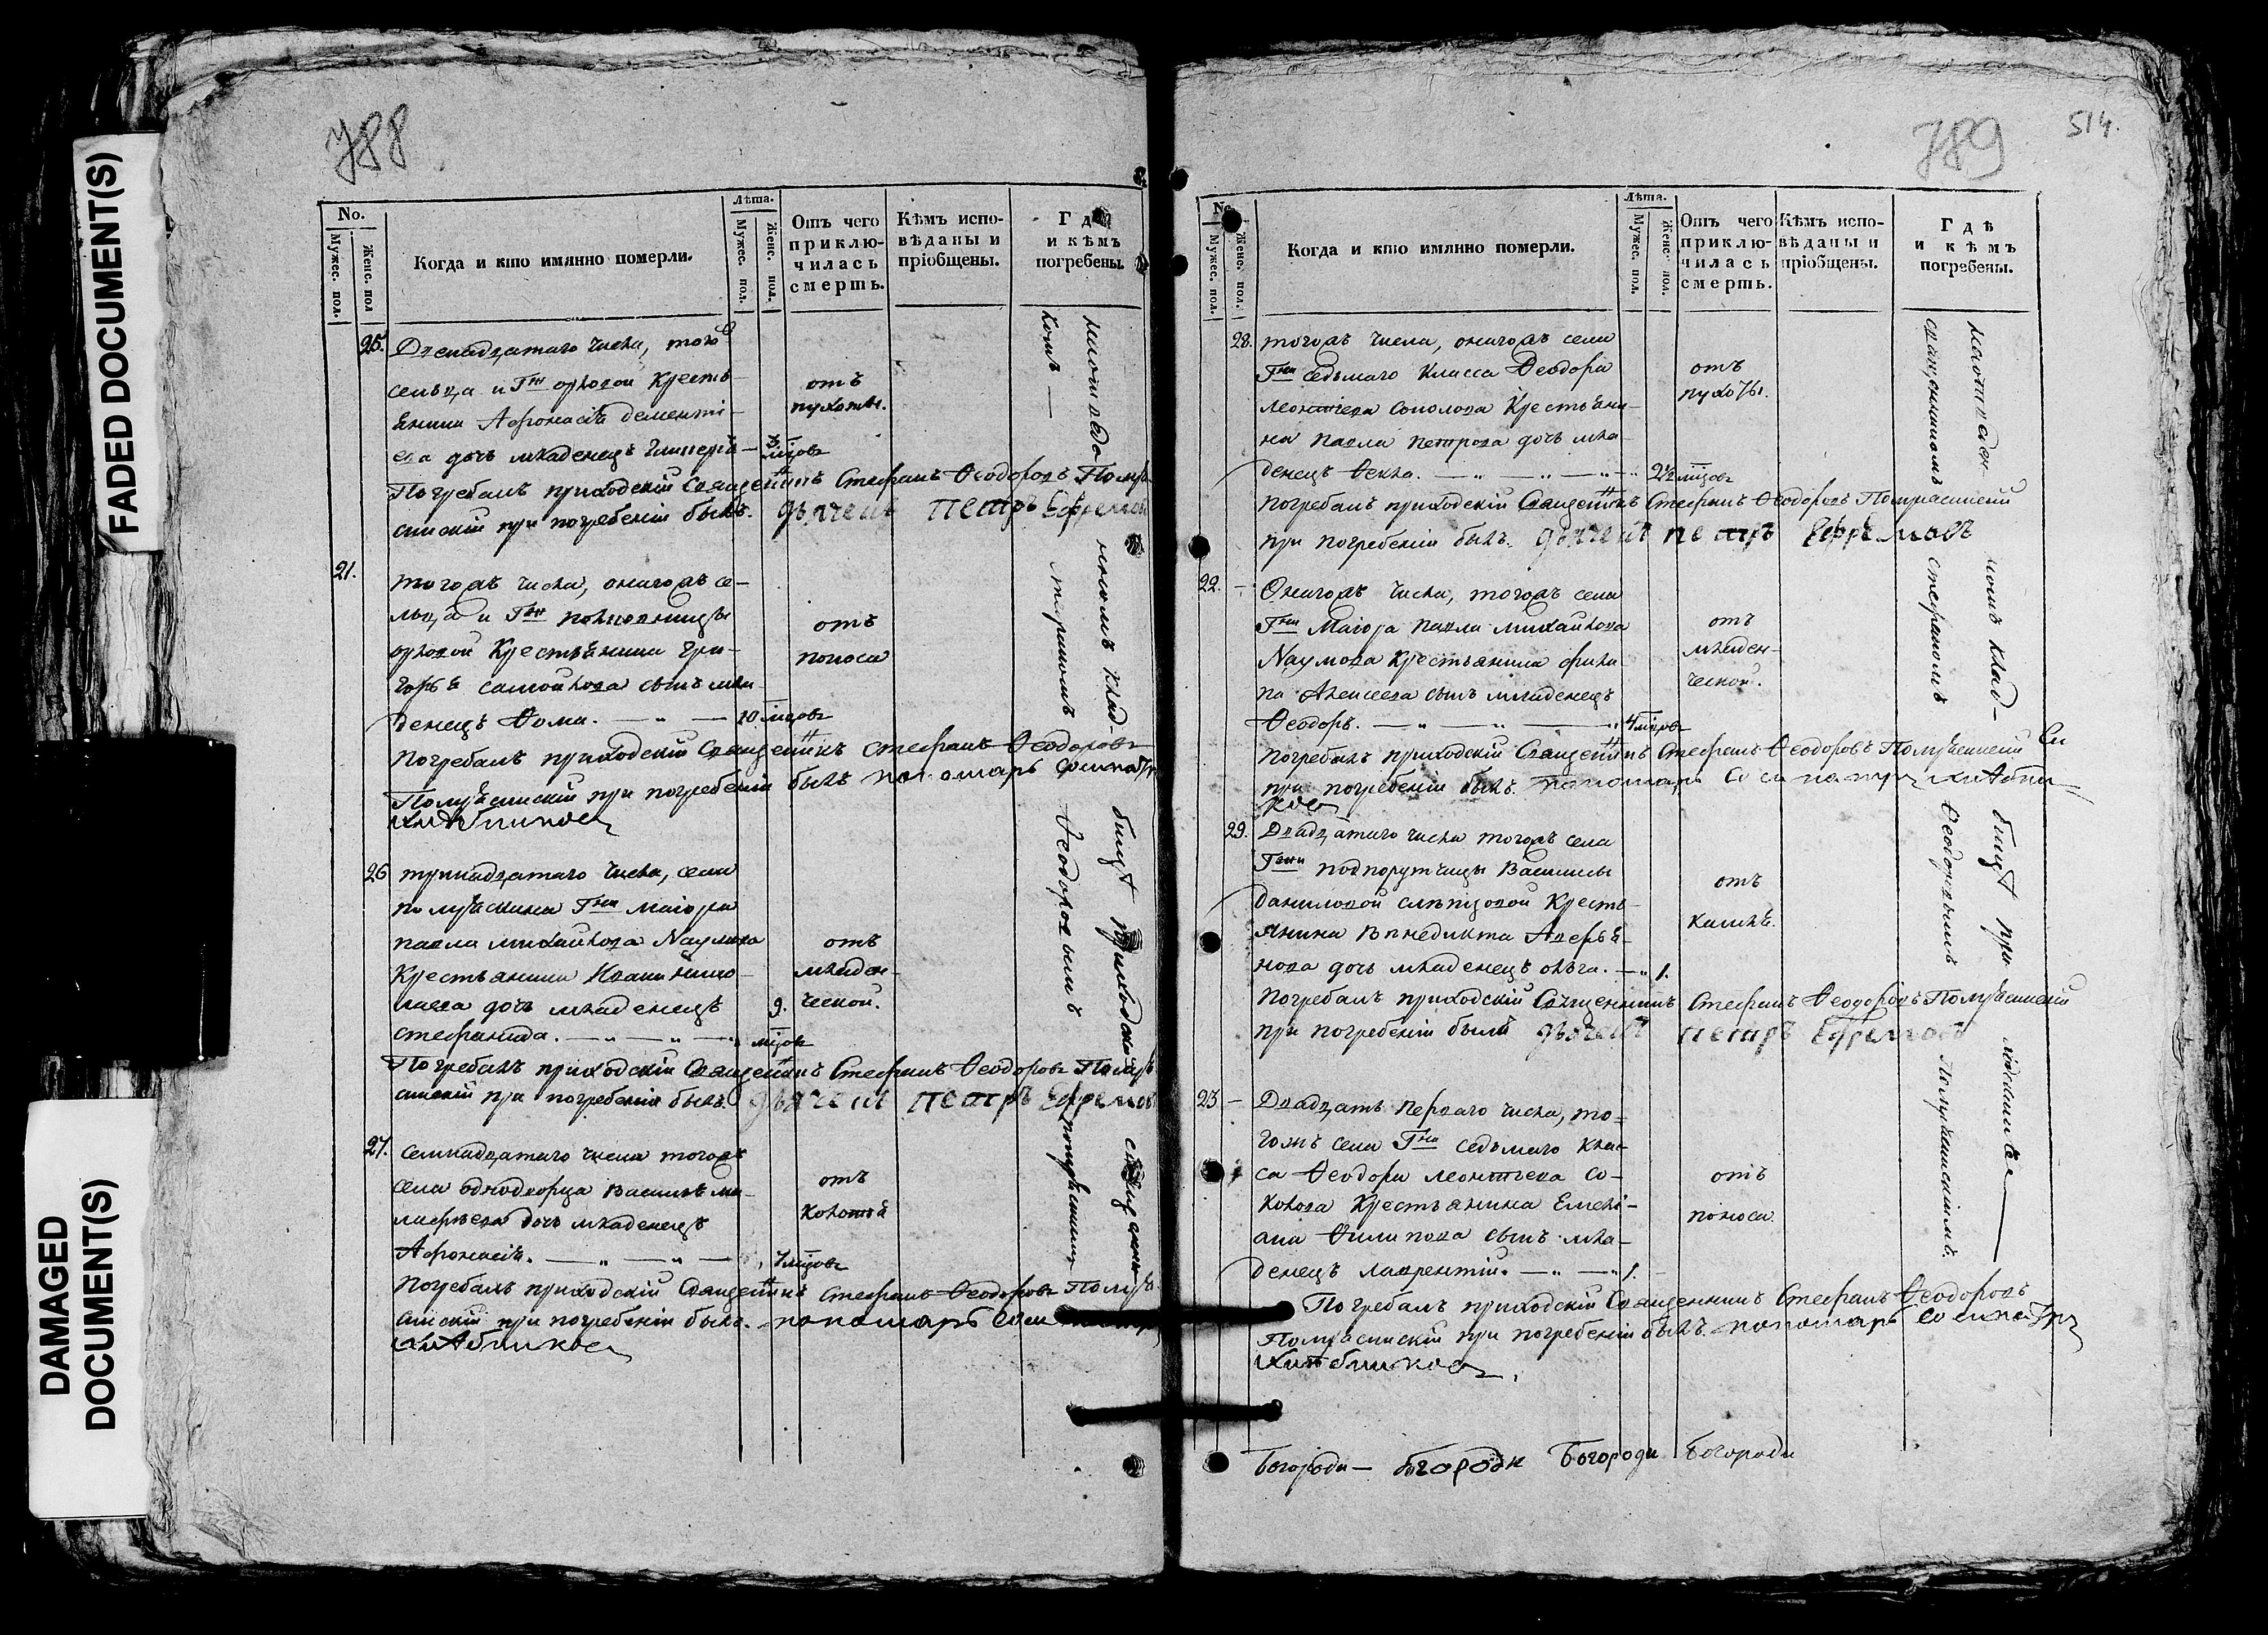 FADED DOCUMENT(S)
DAMAGED
DOCUMENT(S)
788
No.
Мужес. пол.
Женс. пол
Когда и кто имянно померли.
Лѣта.
Мужес. пол.
Женс. пол.
Отъ чего
приклю-
чилась
смерть.
Кѣмъ испо-
вѣданы и
пріобщены.
Гдѣ
и кѣмъ
погребены.
25. Двенадцатаго числа, того
сельца и Гжи орловой Кресть-
янина Афонасія дементі-
ева дочь младенецъ Гликерія — 3 мцовъ
отъ
пухоты.
Погребалъ приходскій Священникъ Стефанъ Ѳеодоровъ Полуя
синскій при погребеніи былъ. дьячекъ петръ Ефремов
21. тогожъ числа, оногожъ се-
льца и Гжи полковницы
орловой Крестьянина Гри-
горья самойлова сынъ мла-
денецъ Ѳома. — " — 10 мцовъ
отъ
поноса
Погребалъ приходскій Священникъ стефанъ Ѳеодоровъ
Полуясинскій при погребеніи былъ пономарь
26 тринадцатаго числа, села
полуяснина Гна маіора
павла михайлова Наумова
Крестьянина Ивана нико-
лаева дочь младенецъ
стефанида. — " — " — " 9. мцовъ
отъ
младен-
ческой.
Погребалъ приходскій Священникъ Стефанъ Ѳеодоровъ Полуя
синскій при погребеніи былъ. дьячекъ петръ Ефремов
27. семнадцатаго числа тогожъ
села однодворца Василья ма-
лафѣева дочь младенецъ
Афонасія. — " — " — 7 мцовъ
отъ
колотья
Погребалъ приходскій Священникъ Стефанъ Ѳеодоровъ Полуя
синскій при погребеніи былъ. пономарь
на отведенномъ клад- бищѣ приходскимъ священни-
комъ — Стефаномъ Ѳеодоровымъ полуясинским
789
514.
No.
Мужес. пол.
Женс. пол.
Когда и кто имянно померли.
Лѣта.
Мужес. пол.
Женс. пол.
Отъ чего
приклю-
чилась
смерть.
Кѣмъ испо-
вѣданы и
пріобщены.
Гдѣ
и кѣмъ
погребены.
28. тогожъ числа, оногожъ села
Гна седьмаго класса Ѳеодора
леонтьева соколова Крестьяни-
на павла петрова дочь мла-
денецъ Ѳекла. — " — " — " 2½ мцовъ
отъ
пухоты.
Погребалъ приходскій Священникъ Стефанъ Ѳеодоровъ Полуясинскій
при погребеніи былъ. дьячекъ петръ Ефремовъ
22. — Оногожъ числа, тогожъ села
Гна Маіора павла михайлова
Наумова Крестьянина фили
па Алексеева сынъ младенецъ
Ѳеодоръ. — " — " — " 4 мцовъ
отъ
младен-
ческой.
Погребалъ приходскій Священникъ Стефанъ Ѳеодоровъ Полуясинскій
при погребеніи былъ. пономарь
29. Двадцатаго числа тогожъ села
Гжи подпорутчицы Василисы
даниловой слѣпцовой Кресть-
янина Венедикта Аверья-
нова дочь младенецъ олга. — " 1.
отъ
кашля.
Погребалъ приходскій Священникъ Стефанъ Ѳеодоровъ Полуясинскій
при погребеніи былъ дьячекъ петръ Ефремовъ
23 — Двадцать перваго числа, то-
гожъ села Гна седьмаго клас-
са Ѳеодора леонтьева со-
колова Крестьянина Емелі-
ана Филипова сынъ мла-
денецъ лаврентій. — " — " 1.
отъ
поноса.
Погребалъ приходскій Священникъ Стефанъ Ѳеодоровъ
Полуясинскій при погребеніи былъ. пономарь
на отведен- номъ клад- бищѣ при
священникомъ стефаномъ Ѳеодоровымъ Полуясинскимъ.
Богороди — Богороди Богороди Богороди